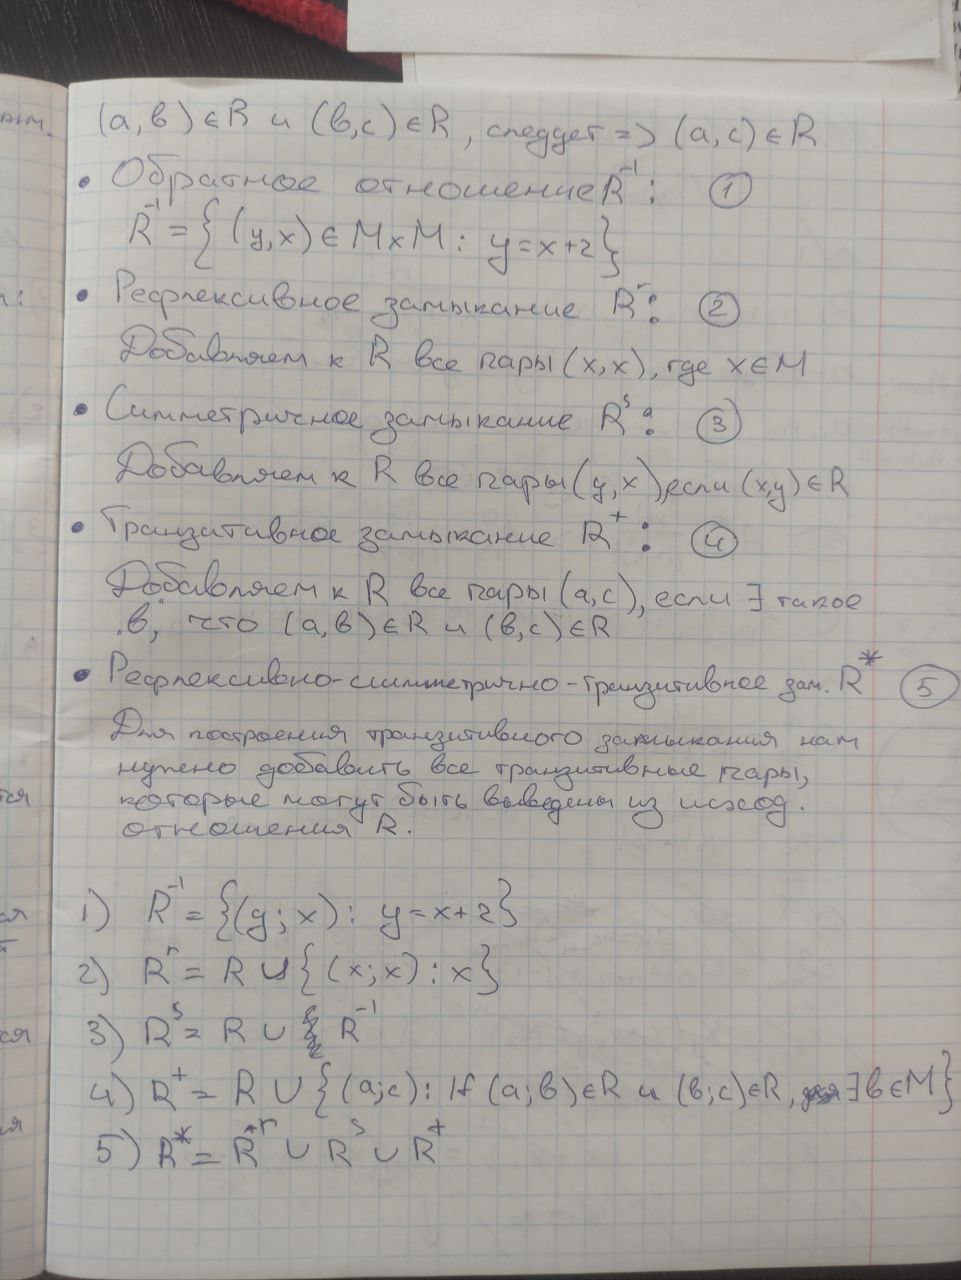 (a,в)∈R и (в,c)∈R, следует => (a,c)∈R
• Обратное отношение R⁻¹: ①
R⁻¹ = {(y,x)∈M×M: y=x+2}
• Рефлексивное замыкание Rʳ: ②
Добавляем к R все пары (x,x), где x∈M
• Симметричное замыкание Rˢ: ③
Добавляем к R все пары (y,x), если (x,y)∈R
• Транзитивное замыкание R⁺: ④
Добавляем к R все пары (a,c), если ∃ такое
"в", что (a,в)∈R и (в,c)∈R
• Рефлексивно-симметрично-транзитивное зам. R* ⑤
Для построения транзитивного замыкания нам
нужно добавить все транзитивные пары,
которые могут быть выведены из исход.
отношения R.
1) R⁻¹ = {(y; x): y=x+2}
2) Rʳ = R ∪ {(x; x): x}
3) Rˢ = R ∪ R⁻¹
4) R⁺ = R ∪ {(a;c): If (a;в)∈R и (в;c)∈R, ∃в∈M}
5) R* = Rʳ ∪ Rˢ ∪ R⁺